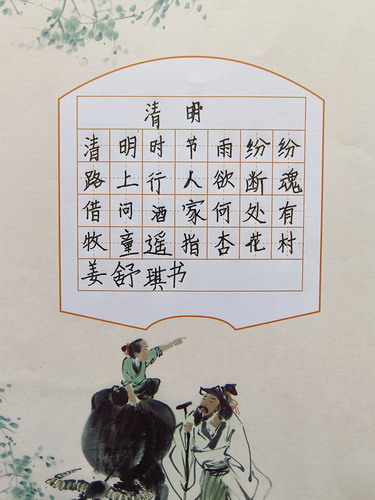 清明
清明时节雨纷纷
路上行人欲断魂
借问酒家何处有
牧童遥指杏花村
姜舒琪书